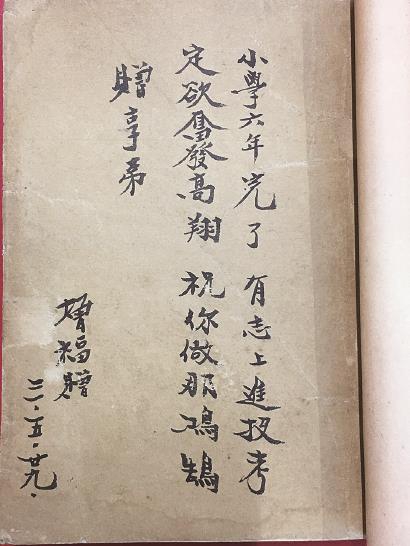 小學六年完了 有志上進投考
定欲奮發高翔 祝你做那鴻鵠
贈享弟
增福贈
三一·五·廿九·